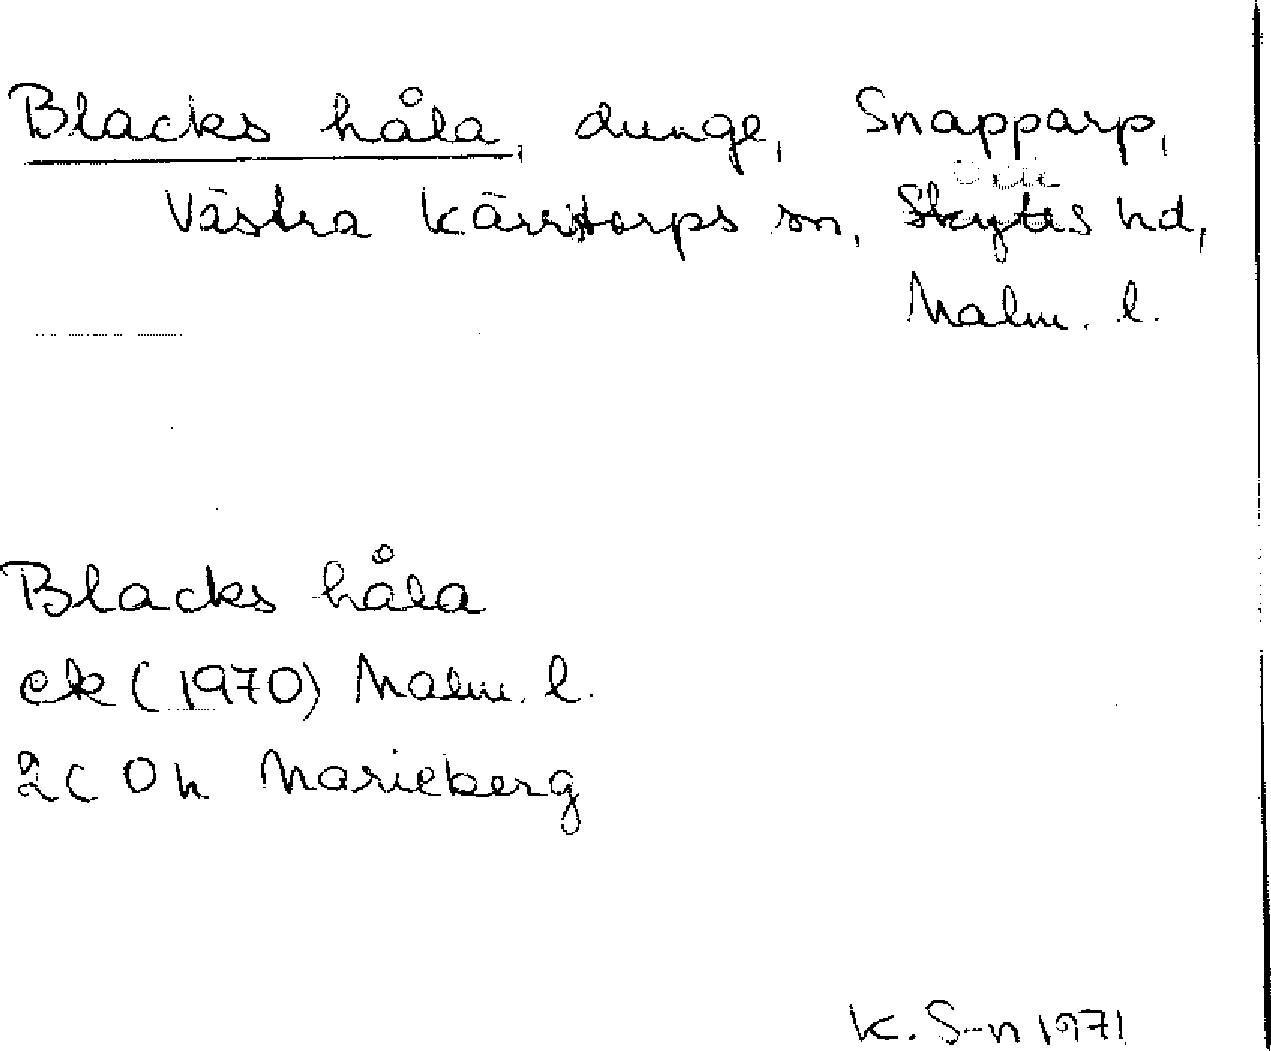 Blacks håla, dunge, Snapparp,
Västra Kärrstorps sn, Skytts hd,
Malm. l.
Blacks håla
ek (1970) Malm. l.
2C 0h Marieberg
K. S-n 1971